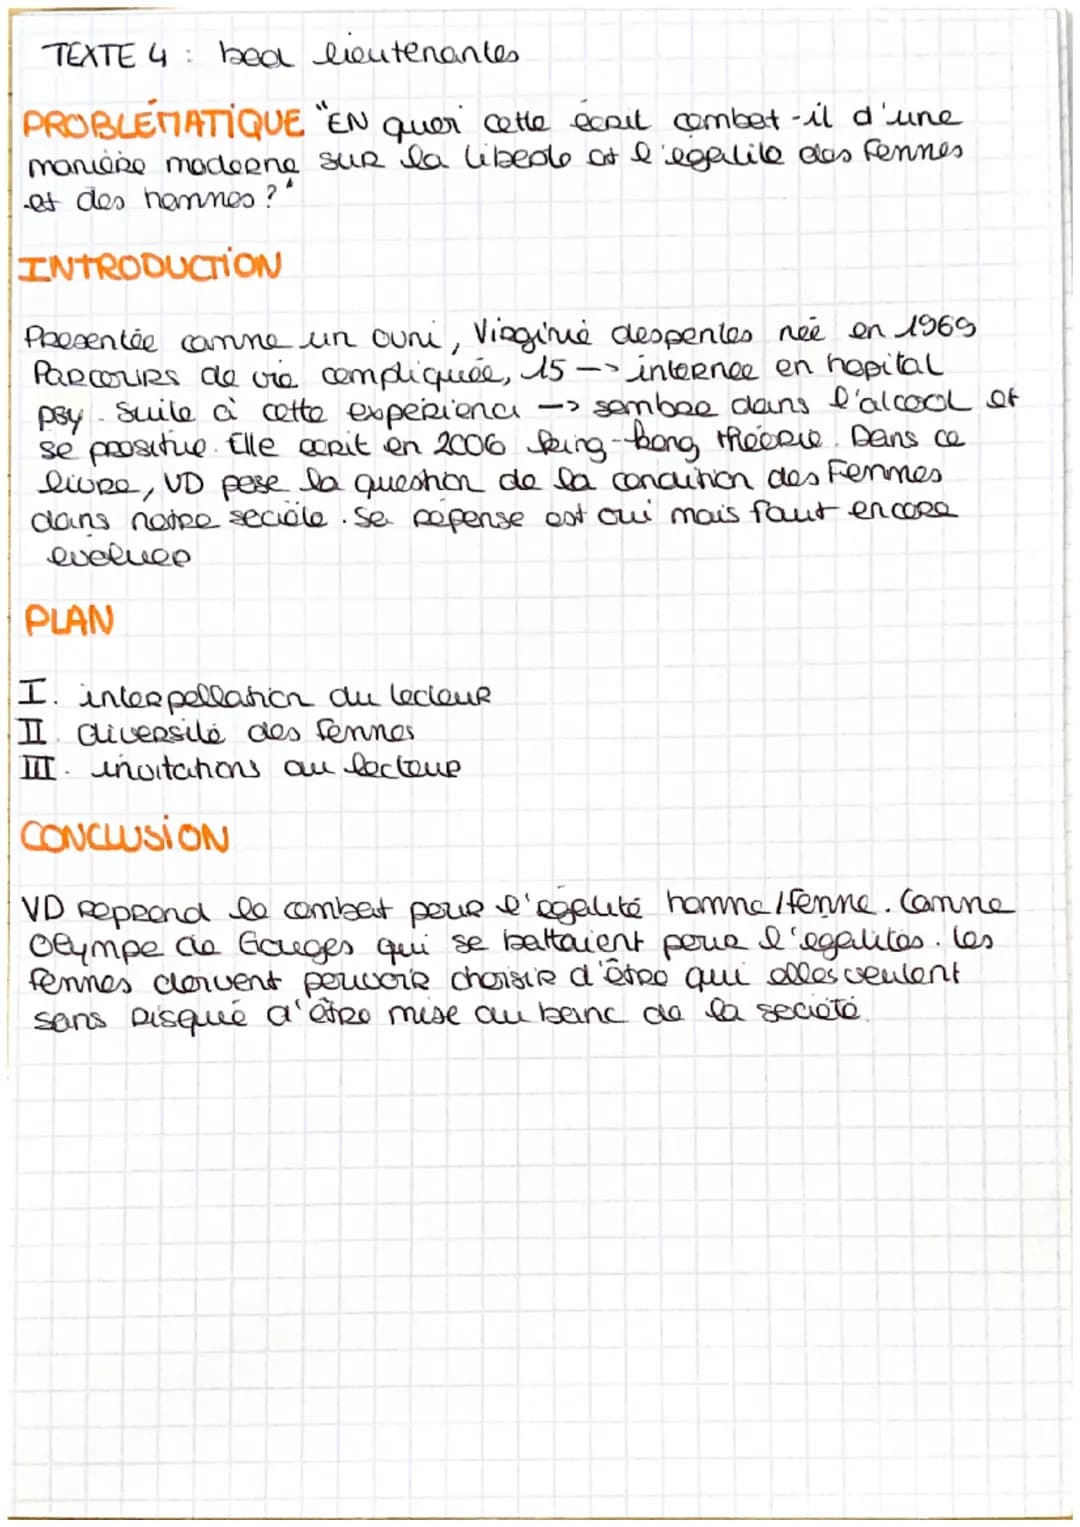 TEXTE 4 : bead lieutenantes
PROBLÉMATIQUE "EN quoi cette écrit combat-il d'une
manière moderne sur la liberte et l'égalite des Femmes
et des hommes ?"
INTRODUCTION
Presentée comme un ovni, Virginie despentes née en 1969
Parcours de vie compliquée, 15 -> internee en hopital
psy. Suite à cette experience -> sombre dans l'alcool et
se prositue. Elle ecrit en 2006 king-kong théorie. Dans ce
livre, VD pose la question de la condition des Femmes
dans notre sociéte. Se réponse est oui mais faut encore
evoluer
PLAN
I. interpellation du lecteur
II. diversité des femmes
III. invitations au lecteur
CONCLUSION
VD reprend le combat pour l'égalité homme/femme. Comme
Olympe de Gouges qui se battaient pour l'egalites. les
femmes doivent pouvoir choisir d'être qui elles veulent
sans risqué d'être mise au banc de la société.